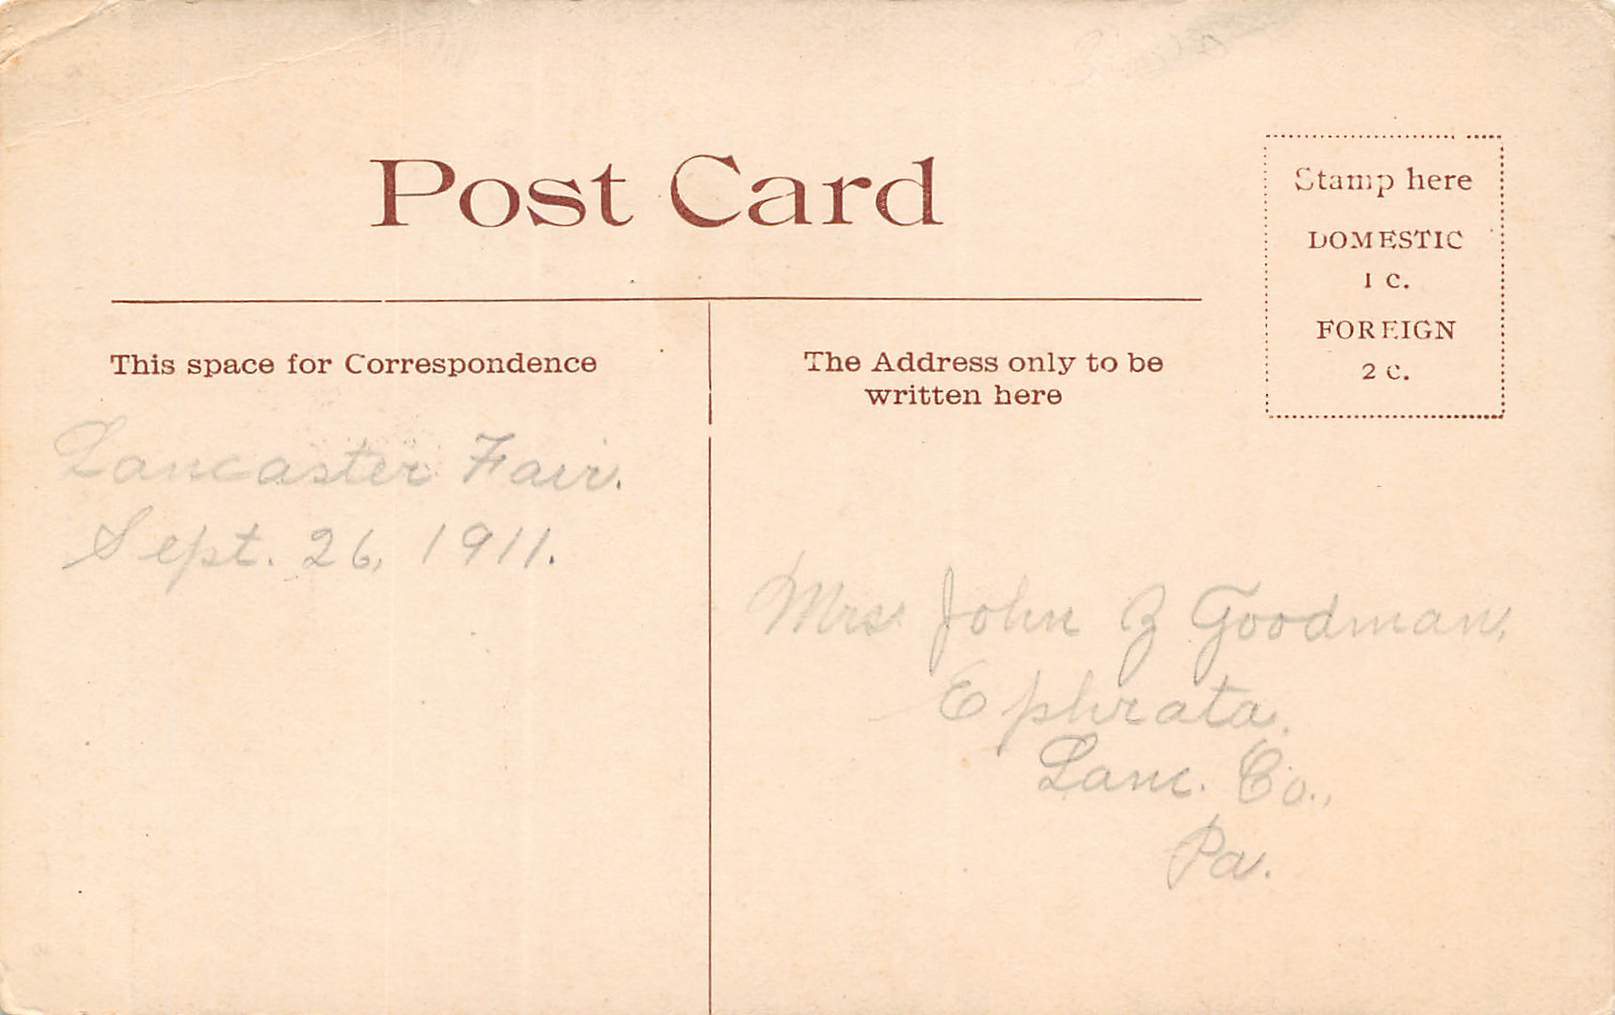 Post Card
Stamp here
DOMESTIC
1 C.
FOREIGN
2 C.
This space for Correspondence
The Address only to be
written here
Lancaster Fair.
Sept. 26, 1911.
Mrs. John Z Goodman,
Ephrata.
Lanc. Co.,
Pa.